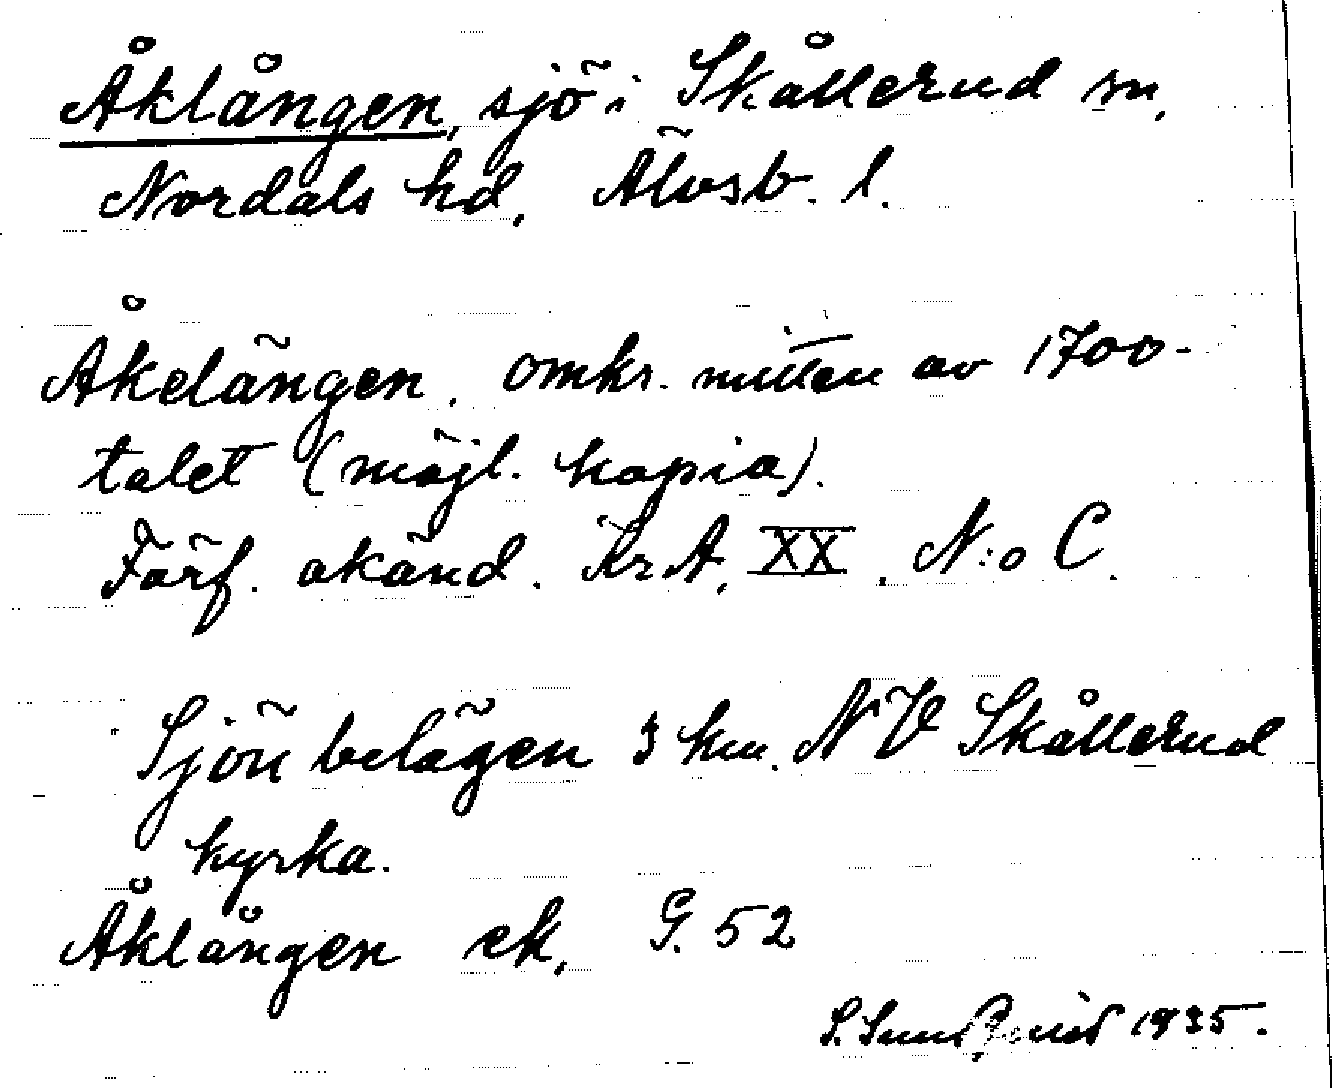 Åklången, sjö i Skållerud sn,
Nordals hd, Älvsb. l.
Åkelängen. omkr. mitten av 1700-
talet (möjl. kopia).
Förf. okänd. KrA, XX. N:o C.
Sjön belägen 3 km. NV Skållerud
kyrka.
Åklången ek, G. 52
S. 1935.